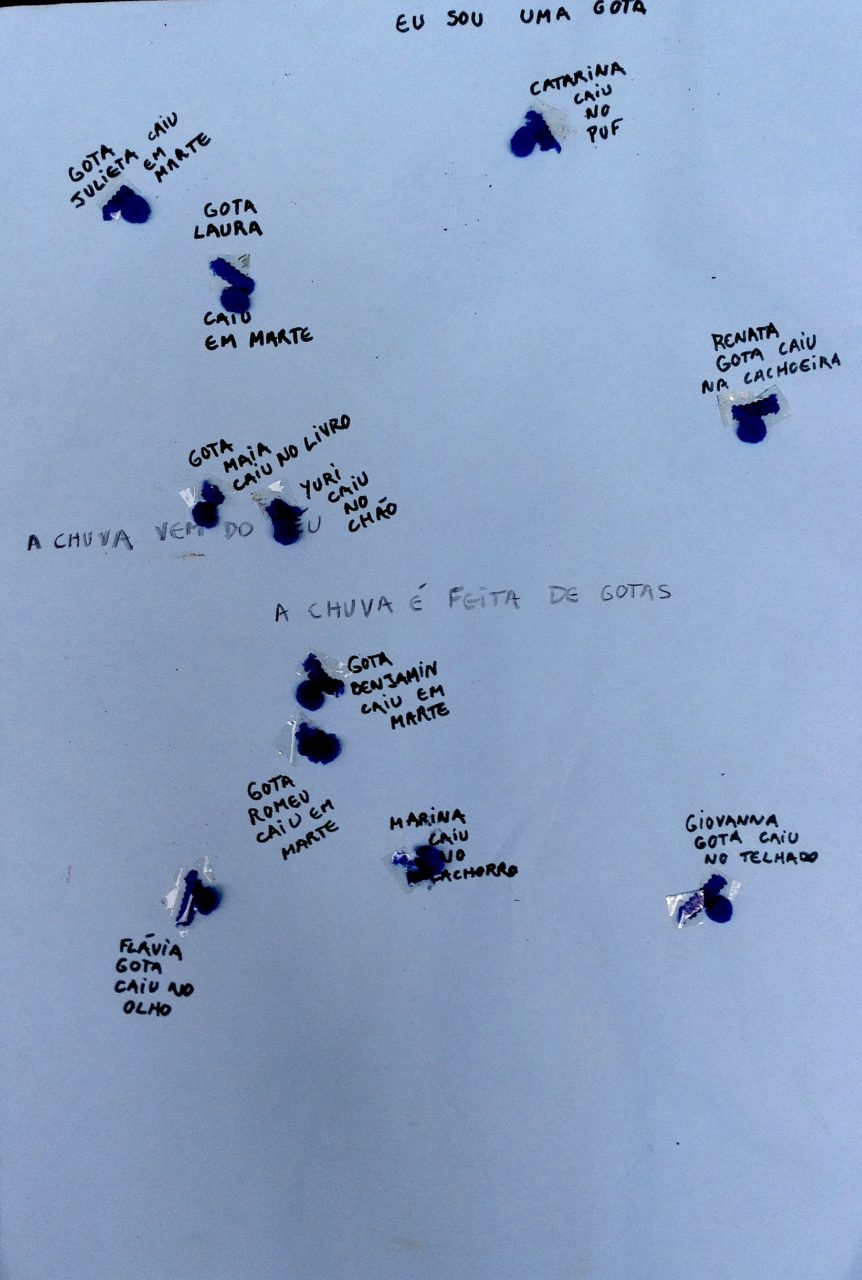 EU SOU UMA GOTA
CATARINA
CAIU
NO
PUF
GOTA
JULIETA CAIU
EM
MARTE
GOTA
LAURA
CAIU
EM MARTE
RENATA
GOTA CAIU
NA CACHOEIRA
GOTA
MAIA
CAIU NO LIVRO
YURI
CAIU
NO
CHÃO
A CHUVA VEM DO CEU
A CHUVA É FEITA DE GOTAS
GOTA
BENJAMIN
CAIU EM
MARTE
GOTA
ROMEU
CAIU EM
MARTE
MARINA
CAIU
NO
CACHORRO
GIOVANNA
GOTA CAIU
NO TELHADO
FLÁVIA
GOTA
CAIU NO
OLHO